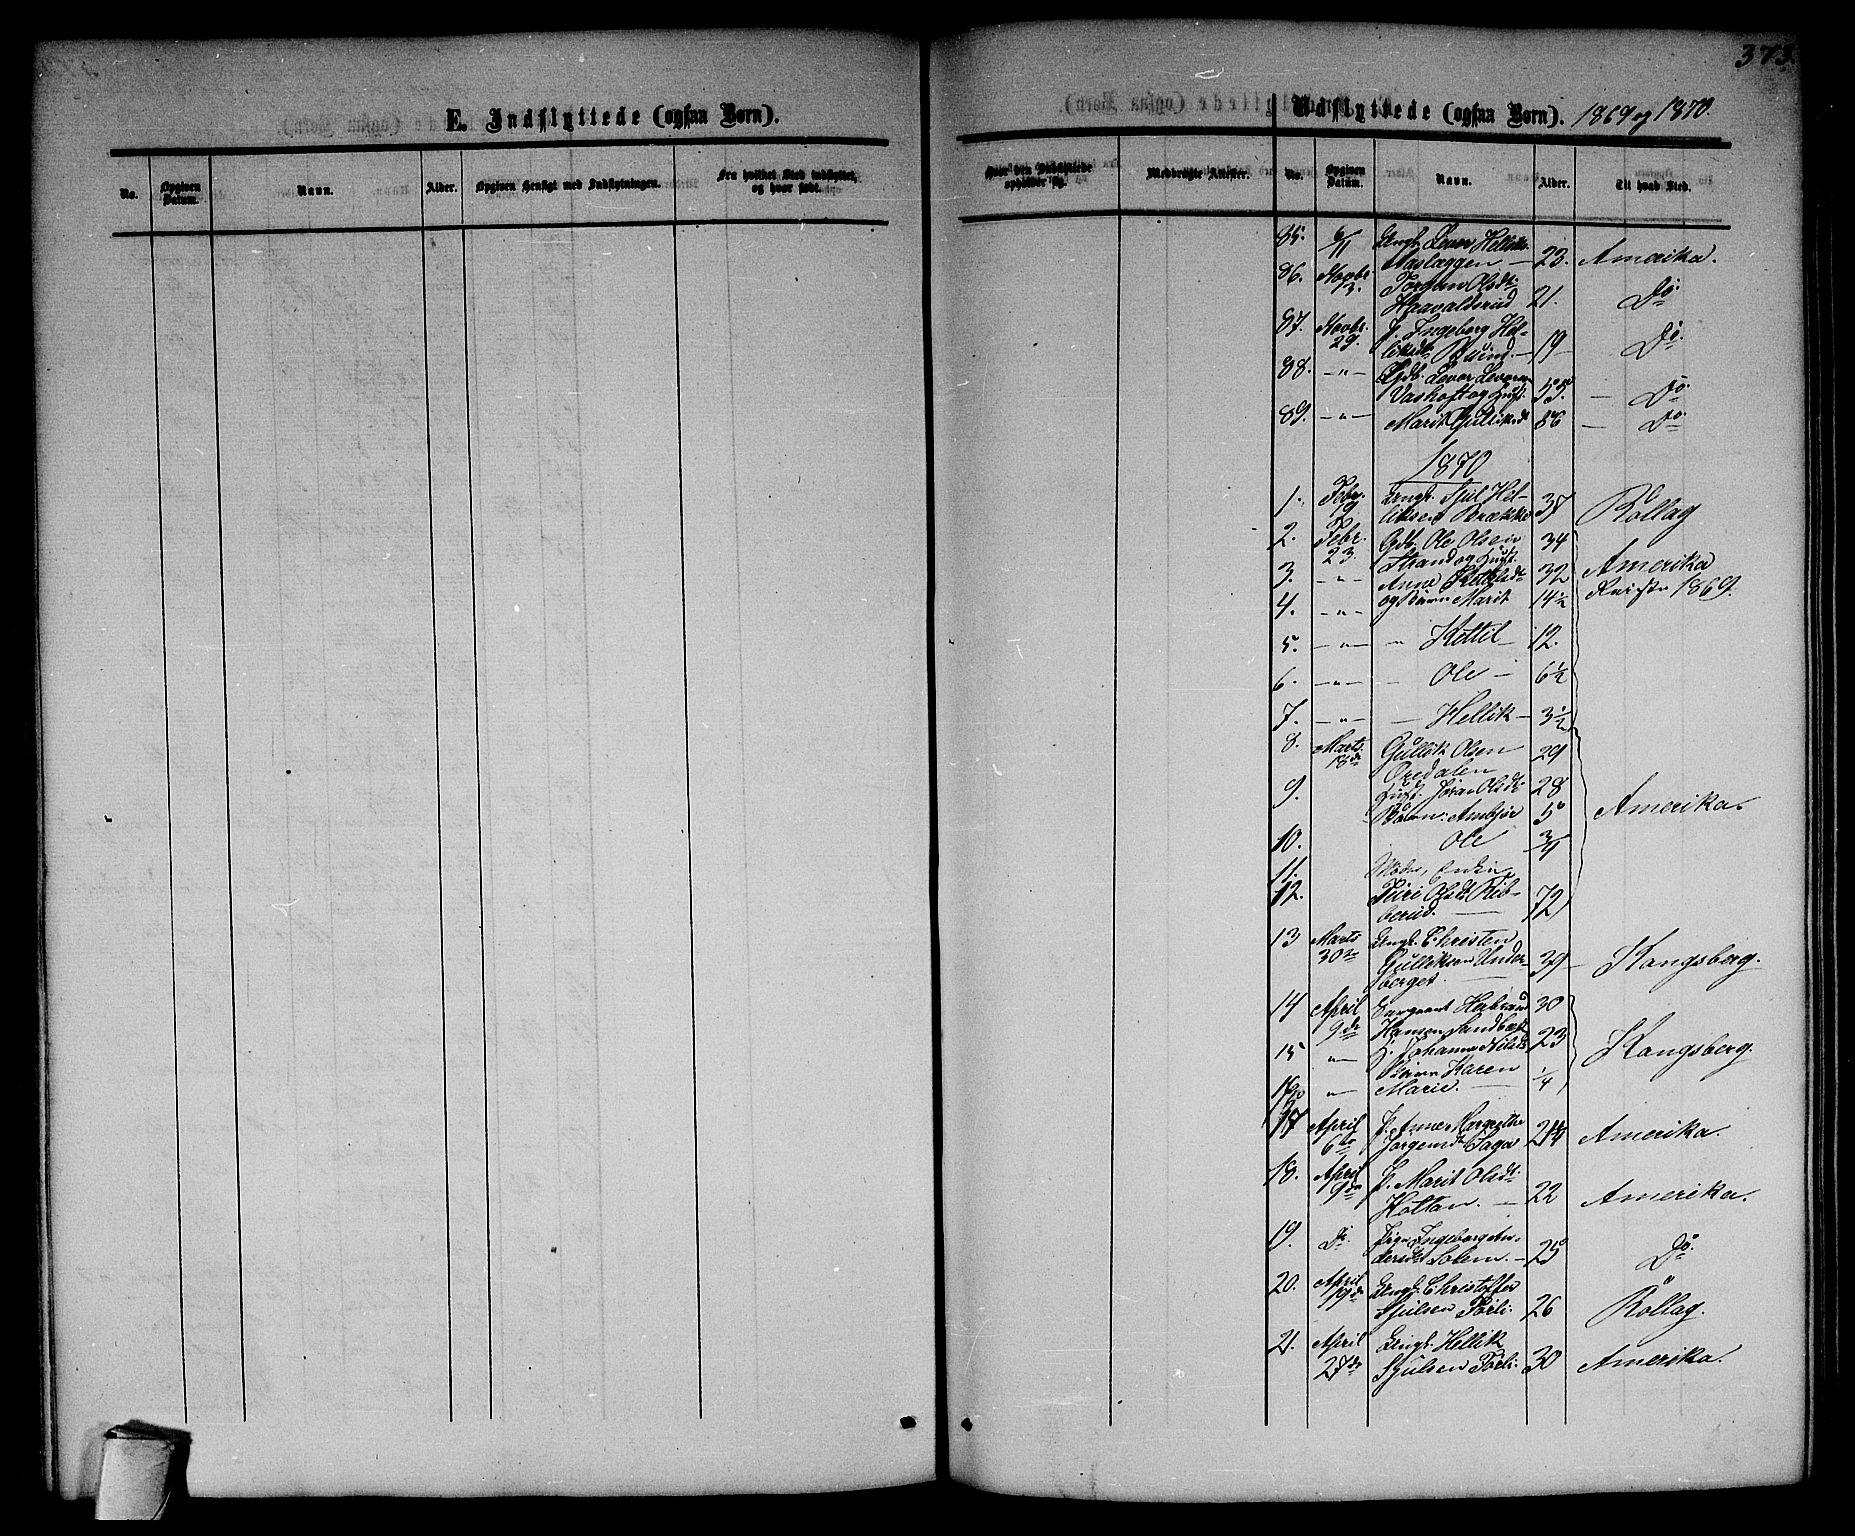 373.
E. Indflyttede (ogsaa Børn).
No.
Opgiven Datum.
Navn.
Alder.
Opgiven Hensigt med Indflytningen.
Fra hvilket Sted indflyttet, og hvor født.
Udflyttede (ogsaa Børn). 1869 og 1870.
Hvor den Indflyttede opholder sig.
Medbragte Attester.
No.
Opgiven Datum.
Navn.
Alder.
Til hvad Sted.
85. 6/11 Ungk. Levor Helliks.
Aaslæggen — 23. Amerika.
86. Novbr. 13. Torgun Olsdr.
Haavaldsrud 21. Do.
87. Novbr. 29. P. Ingeborg Hel-
liksdr. Ruud — 19 — Do.
88. — " — Gdb. Levor Levorsen
Vashoft og Hust. 55. — Do.
89. — " — Marit Gulliksd 86 — Do
1870
1. Febr. 9 Ungk. Sjul Hel-
liksen Brække 37 Rollag
2. Febr. 23. Gdb. Ole Olsen 34
Strand og Hust.
3. — " — Anne Kettilsdr 32 Amerika
4. — " — og Børn Marit 14 1/2 Reiste 1869.
5. — " — " Kettil — 12.
6. — " — — Ole — 6 1/2
7. — " — — Hellik — 3 1/2
8. Marts 18de Gullik Olsen 29
Oredalen
9. Hust. Jøran Olsdr. 28
Børn: Ambjør 5 Amerika.
10. Ole 3/4
11. Moder, Enken
12. Turi Olsdr. Rib-
berud. — 72
13 Marts 30te Ungk. Christen
Gulliksen Under-
berget. 39 — Kongsberg.
14 April 9de Sargeant Herbrand 30
Hansen Sandbæk
15 " — H. Johanne Nilsdr 23 Kongsberg.
Børn Karen
16 " — Marie. — 1/4
17 April 6te P. Anne Margrethe
Jørgensdr Saga 24 Amerika.
18. April 9de P. Marit Olsdr.
Holtan. — 22 Amerika.
19. Do. Pige Ingeborg An-
dersdr Solem. — 25 Do.
20. April 19de Ungk. Christoffer
Sjulsen Børli. 26 Rollag.
21. April 27de Ungk. Hellik
Sjulsen Børli. 30 Amerika.